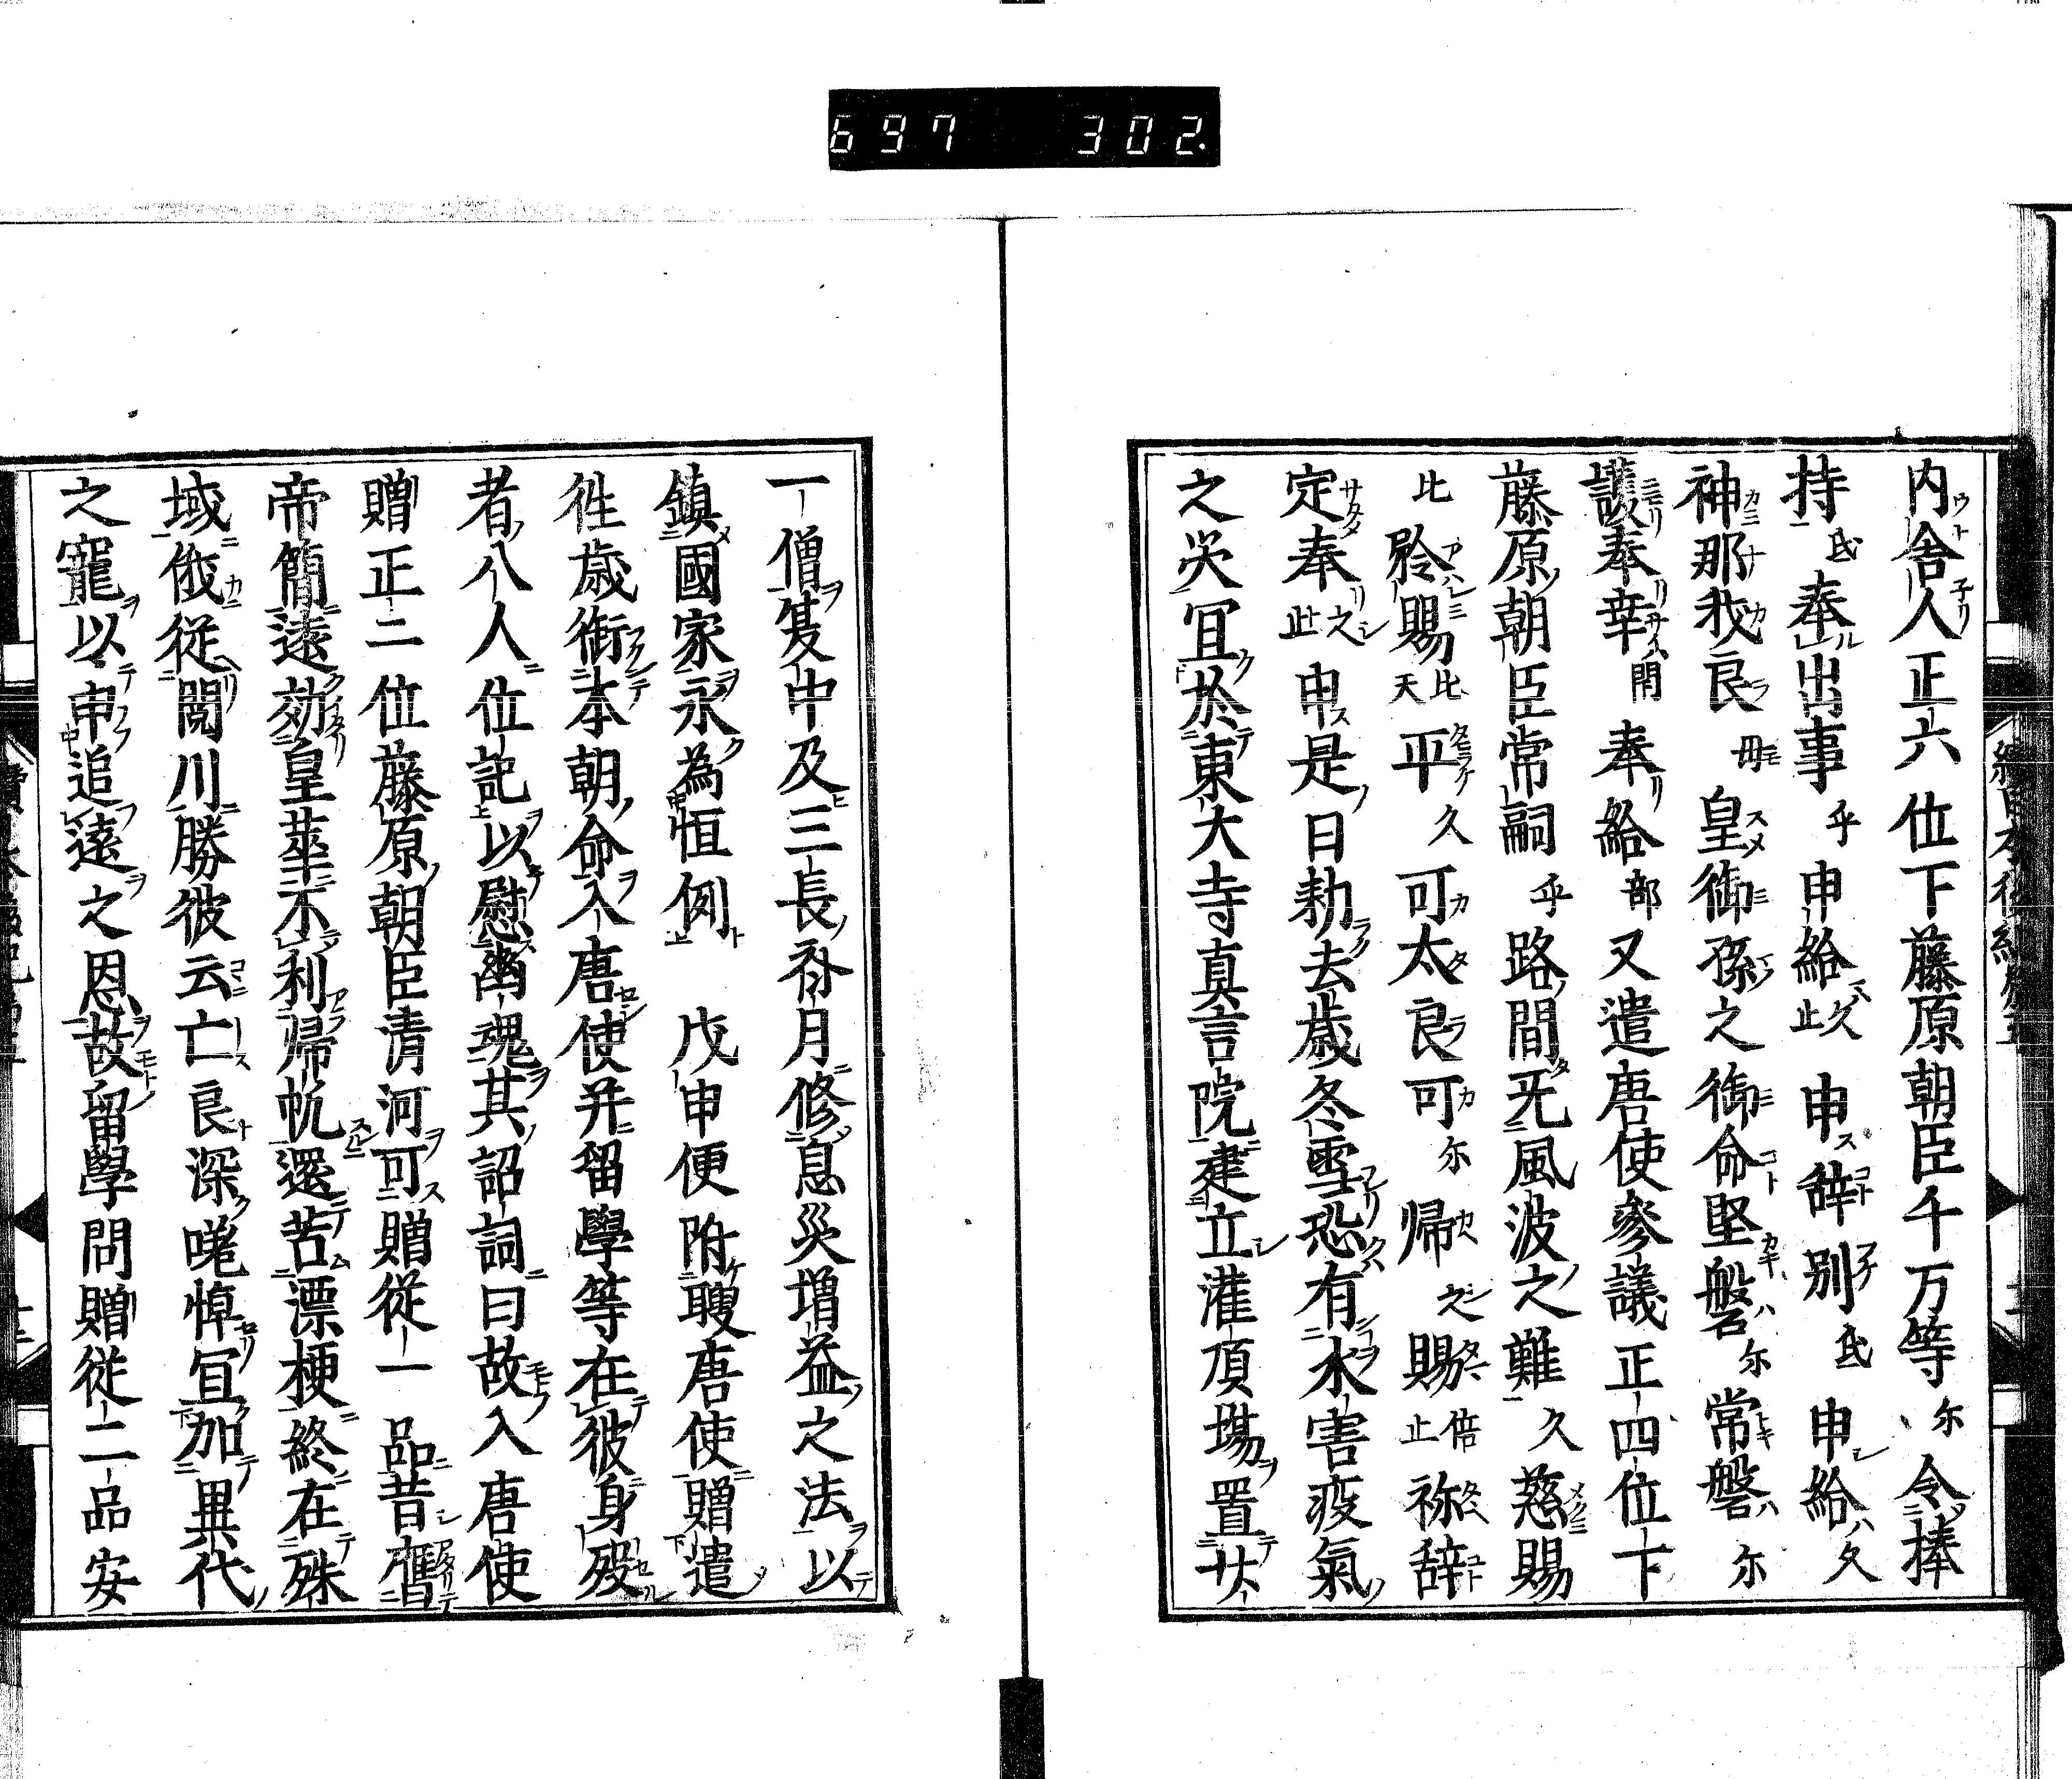 697 302
内舎人正六位下藤原朝臣千万等尓令捧
持氐奉出事乎申給久止申辞別氐申給久
神那我良毋皇御孫之御命堅磐尓常磐尓
護奉幸閇奉給部又遣唐使參議正四位下
藤原朝臣常嗣乎路間无風波之難久慈賜
比矜賜比天平久可太良可尓帰之賜倍止祢辞
定奉止申是日勅去歳冬雪恐有水害疫氣
之灾冝於東大寺真言院建立灌頂塲置廿
一僧夏中及三長斎月修息災増益之法以
鎮國家永為恒例 戊申便附聘唐使贈遣
徃歳銜本朝命入唐使并留學等在彼身歿
者八人位記以慰幽魂其詔詞曰故入唐使
贈正二位藤原朝臣清河可贈従一品昔膺
帝簡遠効皇華不利帰帆還苦漂梗終在殊
域俄従閲川勝彼云亡良深嗟悼冝加異代
之寵以申追遠之恩故留學問贈従二品安